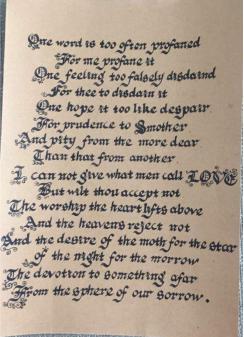 One word is too often profaned
For me profane it
One feeling too falsely disdaind
For thee to disdain it
One hope it too like despair
For prudence to Smother
And pity from the more dear
Than that from another
I can not give what men call LOVE
But wilt thou accept not
The worship the heart lifts above
And the heavens reject not
And the desire of the moth for the star
of the night for the morrow
The devotion to something afar
From the sphere of our sorrow.